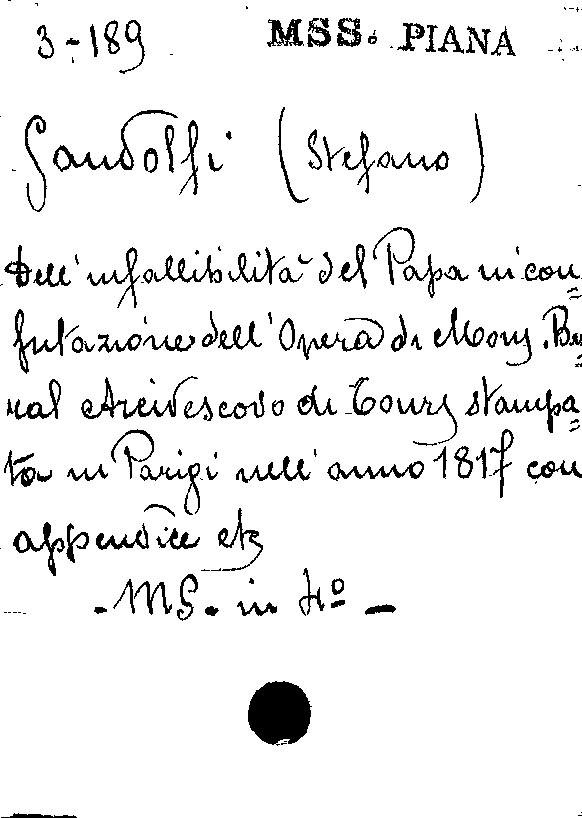 3-189 MSS. PIANA
Gandolfi (Stefano)
Dell'infallibilità del Papa in con=
futazione dell'Opera di Mons. Ba=
ral Arcivescovo di Tours stampa=
ta in Parigi nell'anno 1817 con
appendice etz
- MS. in 4º -